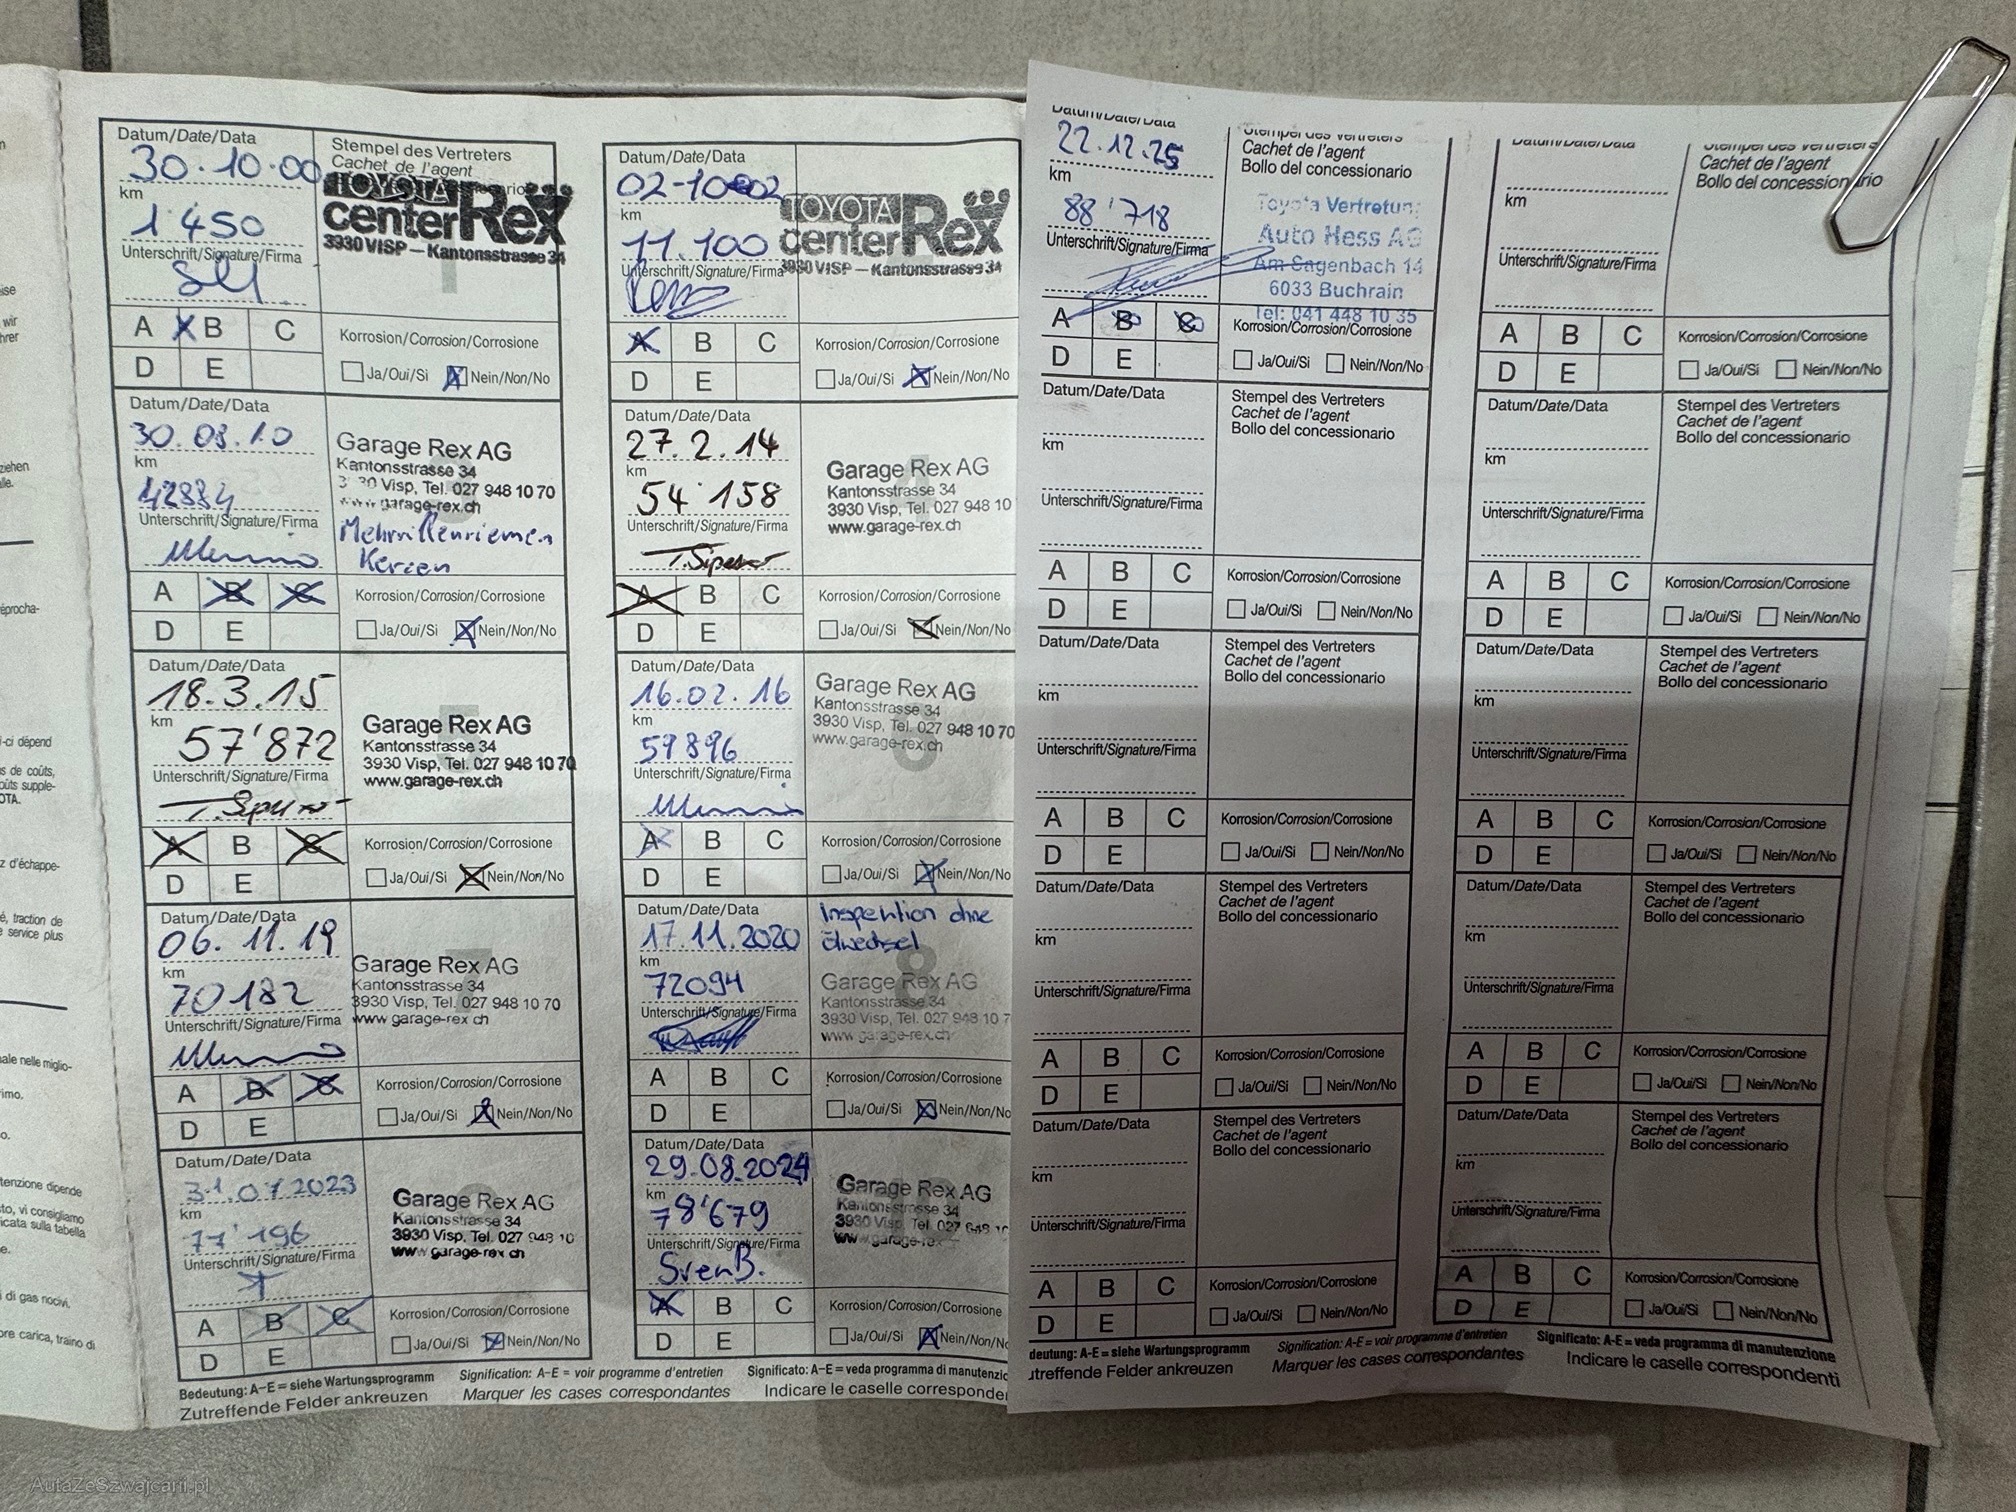 Datum/Date/Data
30.10.00
km
1450
Unterschrift/Signature/Firma
Stempel des Vertreters
Cachet de l'agent
TOYOTA
center Rex
3930 VISP — Kantonsstrasse 34
A B C
D E
Korrosion/Corrosion/Corrosione
Ja/Oui/Si Nein/Non/No
Datum/Date/Data
02-10-02
km
11.100
Unterschrift/Signature/Firma
TOYOTA
center Rex
3930 VISP — Kantonsstrasse 34
A B C
D E
Korrosion/Corrosion/Corrosione
Ja/Oui/Si Nein/Non/No
Datum/Date/Data
30.03.10
km
42884
Unterschrift/Signature/Firma
Garage Rex AG
Kantonsstrasse 34
3930 Visp, Tel. 027 948 10 70
www.garage-rex.ch
Kerzen
A B C
D E
Korrosion/Corrosion/Corrosione
Ja/Oui/Si Nein/Non/No
Datum/Date/Data
27.2.14
km
54'158
Unterschrift/Signature/Firma
Garage Rex AG
Kantonsstrasse 34
3930 Visp, Tel. 027 948 10
www.garage-rex.ch
A B C
D E
Korrosion/Corrosion/Corrosione
Ja/Oui/Si Nein/Non/No
Datum/Date/Data
18.3.15
km
57'872
Unterschrift/Signature/Firma
Garage Rex AG
Kantonsstrasse 34
3930 Visp, Tel. 027 948 10 70
www.garage-rex.ch
A B C
D E
Korrosion/Corrosion/Corrosione
Ja/Oui/Si Nein/Non/No
Datum/Date/Data
16.02.16
km
59896
Unterschrift/Signature/Firma
Garage Rex AG
Kantonsstrasse 34
3930 Visp, Tel. 027 948 10 70
www.garage-rex.ch
A B C
D E
Korrosion/Corrosion/Corrosione
Ja/Oui/Si Nein/Non/No
Datum/Date/Data
06.11.19
km
70182
Unterschrift/Signature/Firma
Garage Rex AG
Kantonsstrasse 34
3930 Visp, Tel. 027 948 10 70
www garage-rex ch
A B C
D E
Korrosion/Corrosion/Corrosione
Ja/Oui/Si Nein/Non/No
Datum/Date/Data
17.11.2020
km
72094
Unterschrift/Signature/Firma
Inspektion ohne
ölwechsel
Garage Rex AG
Kantonsstrasse 34
3930 Visp, Tel. 027 948 10 7
www garage-rex.ch
A B C
D E
Korrosion/Corrosion/Corrosione
Ja/Oui/Si Nein/Non/No
Datum/Date/Data
31.07.2023
km
77'196
Unterschrift/Signature/Firma
Garage Rex AG
Kantonsstrasse 34
3930 Visp, Tel. 027 948 10
www garage-rex ch
A B C
D E
Korrosion/Corrosion/Corrosione
Ja/Oui/Si Nein/Non/No
Datum/Date/Data
29.08.2024
km
78'679
Unterschrift/Signature/Firma
Sven B.
Garage Rex AG
Kantonsstrasse 34
3930 Visp, Tel. 027 948 10
www.garage-rex
A B C
D E
Korrosion/Corrosion/Corrosione
Ja/Oui/Si Nein/Non/No
Bedeutung: A–E = siehe Wartungsprogramm Signification: A–E = voir programme d'entretien Significato: A–E = veda programma di manutenzio
Zutreffende Felder ankreuzen Marquer les cases correspondantes Indicare le caselle corresponde
Datum/Date/Data
22.12.25
km
88'718
Unterschrift/Signature/Firma
Stempel des Vertreters
Cachet de l'agent
Bollo del concessionario
Toyota Vertretung
Auto Hess AG
Am Sagenbach 14
6033 Buchrain
Tel: 041 448 10 35
A B C
D E
Korrosion/Corrosion/Corrosione
Ja/Oui/Si Nein/Non/No
Datum/Date/Data
km
Unterschrift/Signature/Firma
Stempel des Vertreters
Cachet de l'agent
Bollo del concessionario
A B C
D E
Korrosion/Corrosion/Corrosione
Ja/Oui/Si Nein/Non/No
Datum/Date/Data
km
Unterschrift/Signature/Firma
Stempel des Vertreters
Cachet de l'agent
Bollo del concessionario
A B C
D E
Korrosion/Corrosion/Corrosione
Ja/Oui/Si Nein/Non/No
Datum/Date/Data
km
Unterschrift/Signature/Firma
Stempel des Vertreters
Cachet de l'agent
Bollo del concessionario
A B C
D E
Korrosion/Corrosion/Corrosione
Ja/Oui/Si Nein/Non/No
Datum/Date/Data
km
Unterschrift/Signature/Firma
Stempel des Vertreters
Cachet de l'agent
Bollo del concessionario
A B C
D E
Korrosion/Corrosion/Corrosione
Ja/Oui/Si Nein/Non/No
Datum/Date/Data
km
Unterschrift/Signature/Firma
Stempel des Vertreters
Cachet de l'agent
Bollo del concessionario
A B C
D E
Korrosion/Corrosion/Corrosione
Ja/Oui/Si Nein/Non/No
Datum/Date/Data
km
Unterschrift/Signature/Firma
Stempel des Vertreters
Cachet de l'agent
Bollo del concessionario
A B C
D E
Korrosion/Corrosion/Corrosione
Ja/Oui/Si Nein/Non/No
Datum/Date/Data
km
Unterschrift/Signature/Firma
Stempel des Vertreters
Cachet de l'agent
Bollo del concessionario
A B C
D E
Korrosion/Corrosion/Corrosione
Ja/Oui/Si Nein/Non/No
Datum/Date/Data
km
Unterschrift/Signature/Firma
Stempel des Vertreters
Cachet de l'agent
Bollo del concessionario
A B C
D E
Korrosion/Corrosion/Corrosione
Ja/Oui/Si Nein/Non/No
Datum/Date/Data
km
Unterschrift/Signature/Firma
Stempel des Vertreters
Cachet de l'agent
Bollo del concessionario
A B C
D E
Korrosion/Corrosion/Corrosione
Ja/Oui/Si Nein/Non/No
deutung: A–E = siehe Wartungsprogramm Signification: A–E = voir programme d'entretien Significato: A–E = veda programma di manutenzione
utreffende Felder ankreuzen Marquer les cases correspondantes Indicare le caselle corrispondenti
AutaZeSzwajcarii.pl